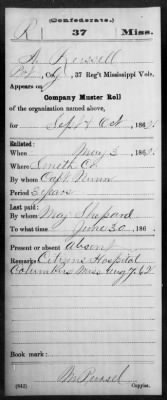 (Confederate.)
R 37 Miss.
Pvt, Co. , 37 Reg't Mississippi Vols.
Appears on
Company Muster Roll
of the organization named above,
for Sept & Oct, 186 .
Enlisted:
When May 3, 186 .
Where Smith Co.
By whom Capt. Nunn
Period 3 years
Last paid:
By whom Maj Shepard
To what time June 30, 186 .
Present or absent absent
Remarks: Citizens Hospital
Columbus Miss Aug 7, 62
Book mark:
(642) Copyist.